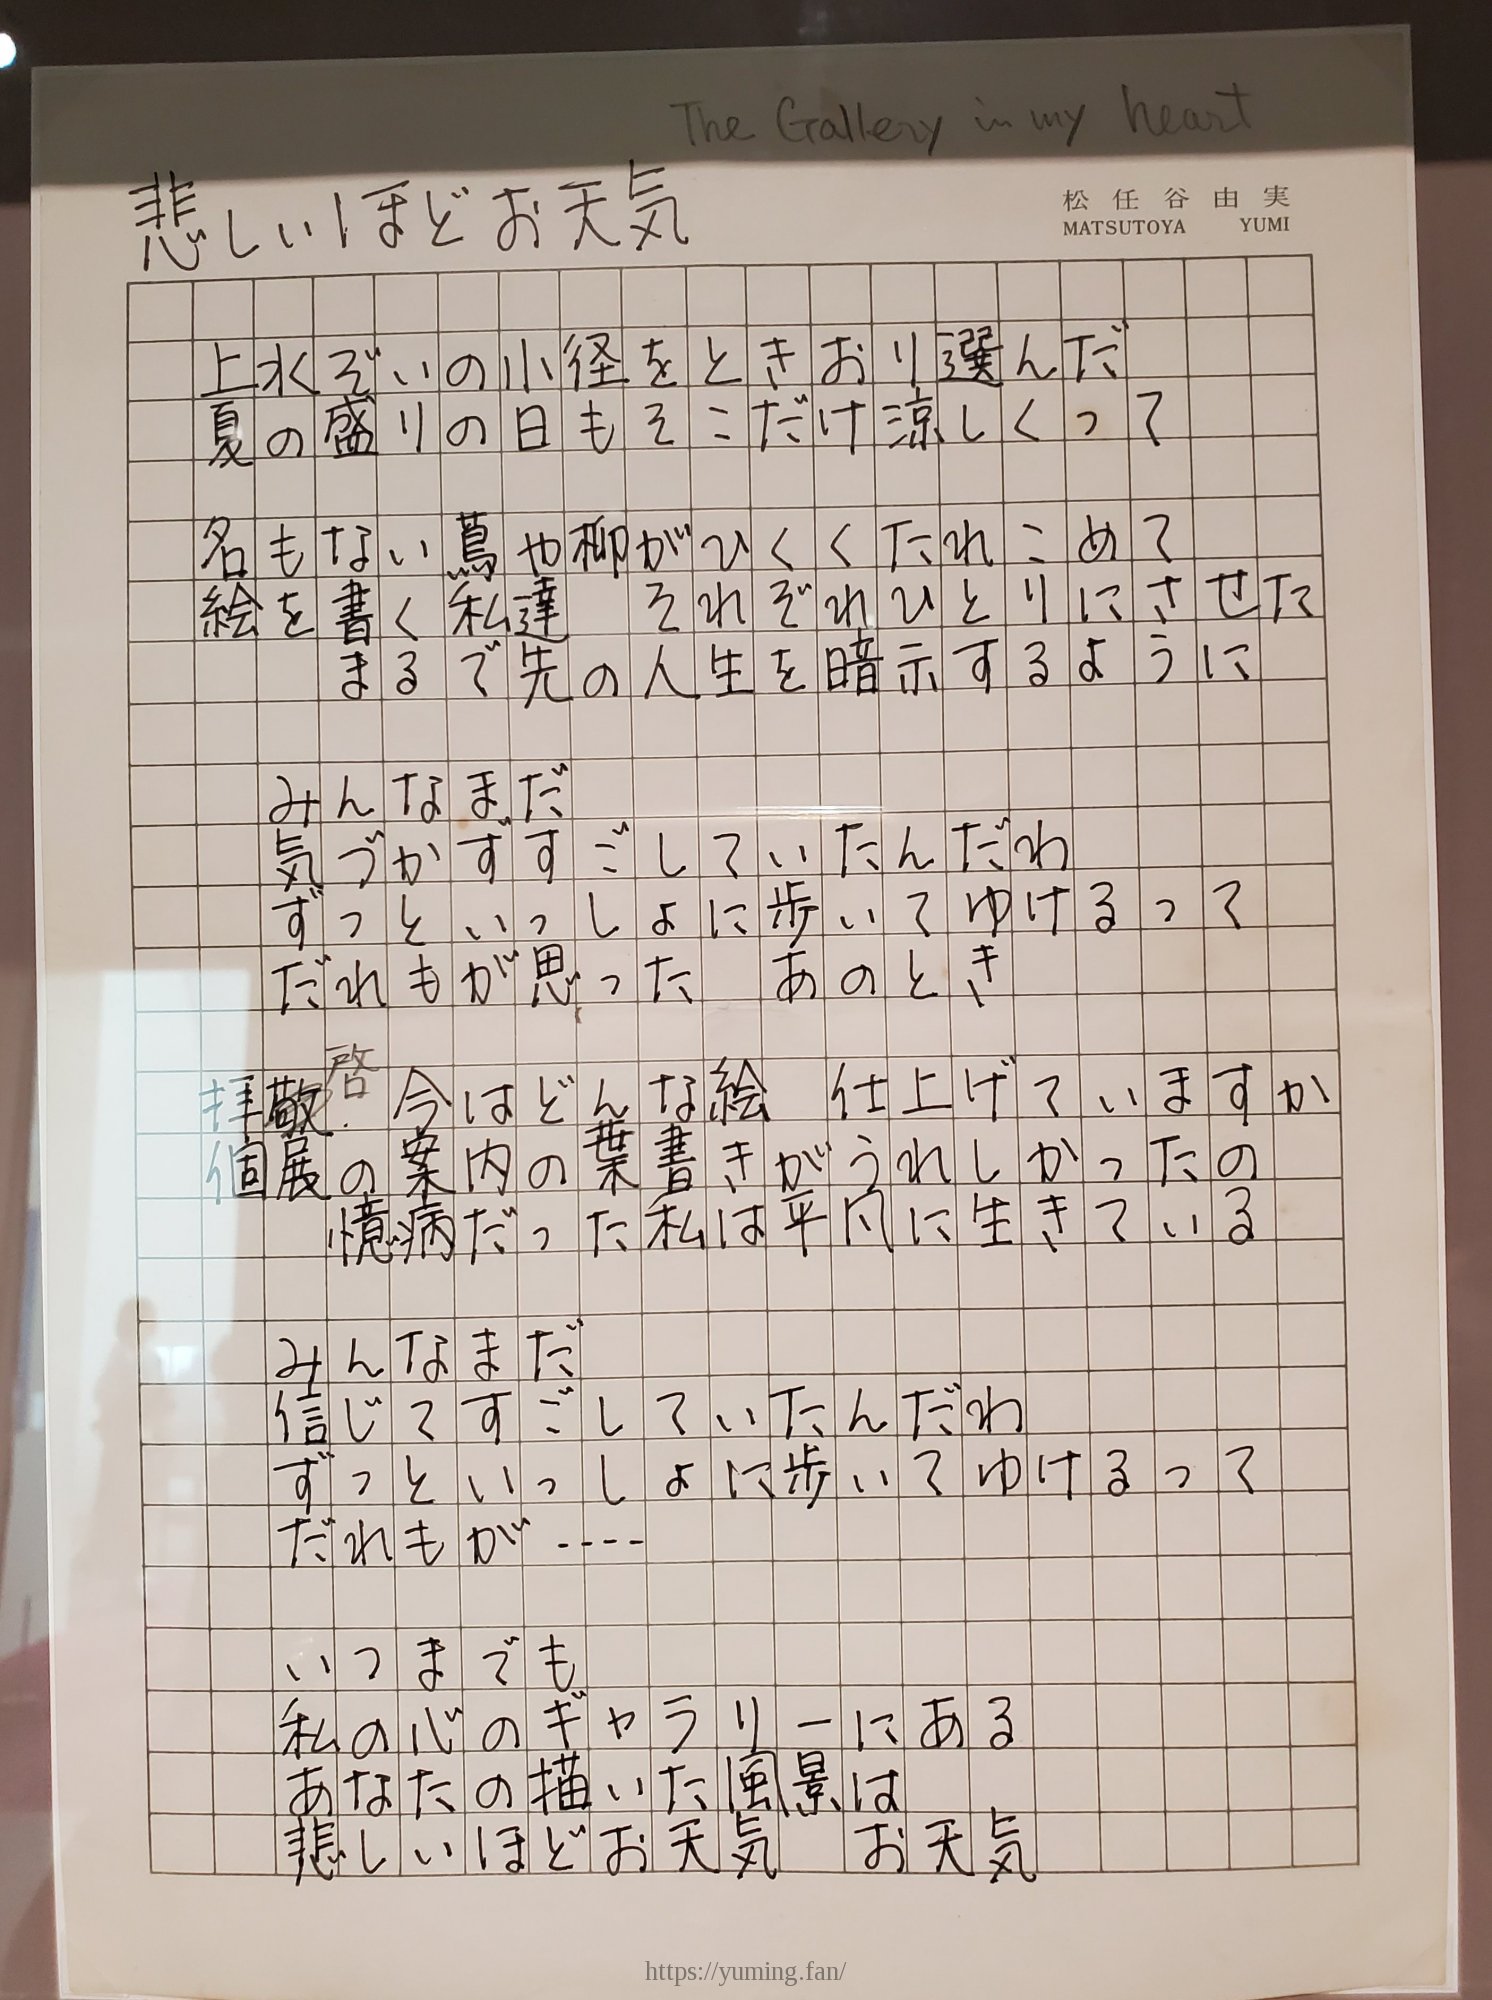 The Gallery in my heart
悲しいほどお天気
松任谷由実
MATSUTOYA YUMI
上水ぞいの小径をときおり選んだ
夏の盛りの日もそこだけ涼しくって
名もない蔦や柳がひくくたれこめて
絵を書く私達　それぞれひとりにさせた
まるで先の人生を暗示するように
みんなまだ
気づかずすごしていたんだわ
ずっといっしょに歩いてゆけるって
だれもが思った　あのとき
啓
拝敬.今はどんな絵　仕上げていますか
個展の案内の葉書きがうれしかったの
憶病だった私は平凡に生きている
みんなまだ
信じてすごしていたんだわ
ずっといっしょに歩いてゆけるって
だれもが----
いつまでも
私の心のギャラリーにある
あなたの描いた風景は
悲しいほどお天気　お天気
https://yuming.fan/